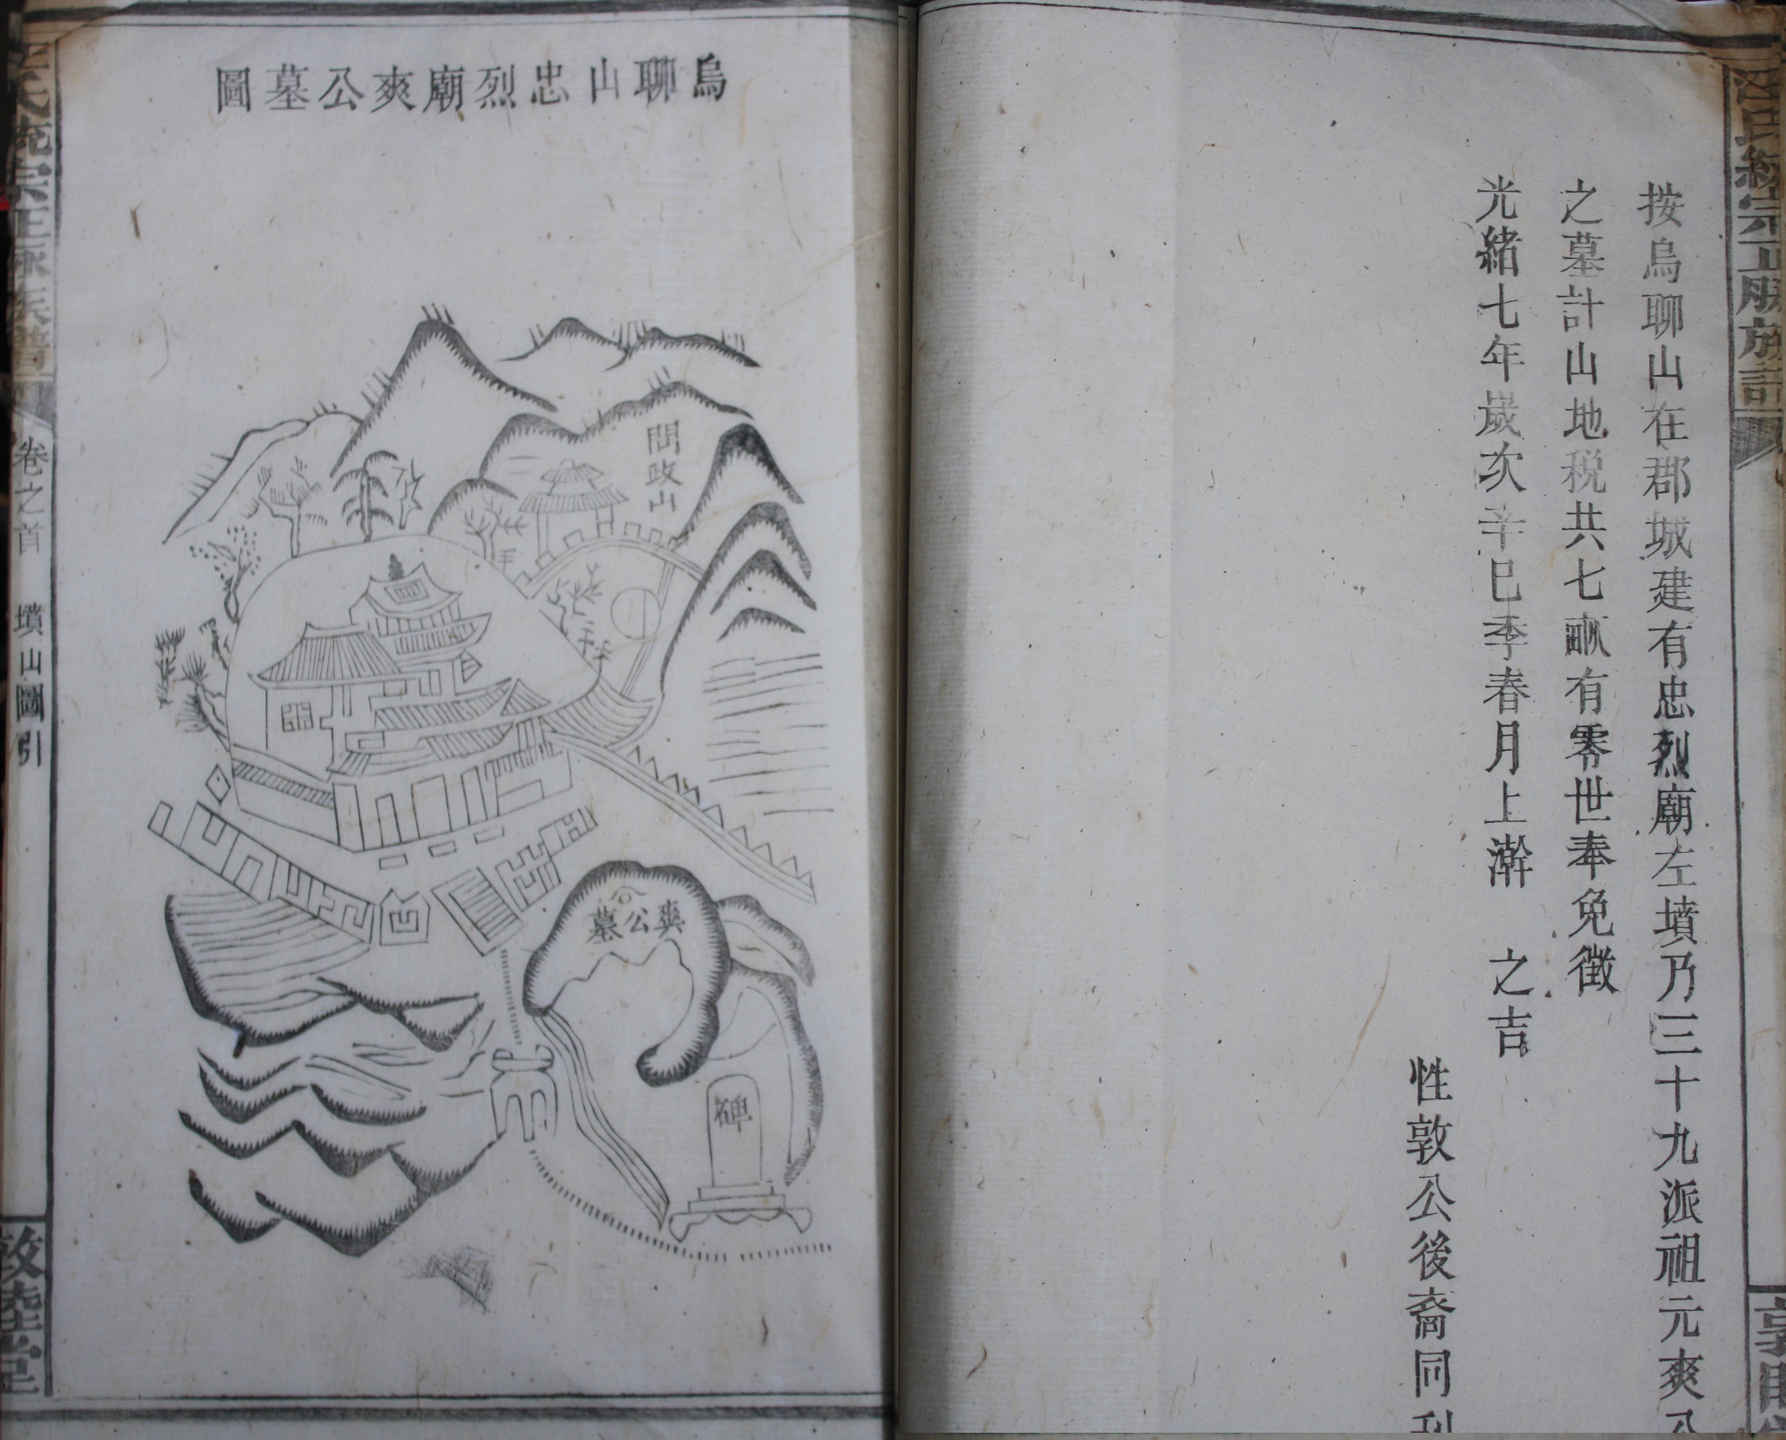 按烏聊山在郡城建有忠烈廟左墳乃三十九派祖元爽公
之墓計山地稅共七畝有零世奉免徵
光緒七年歲次辛巳季春月上澣 之吉
性敦公後裔同刊
烏聊山忠烈廟爽公墓圖
問政山
爽公墓
碑
汪氏統宗正脉族譜
卷之首 墳山圖引
敦睦堂